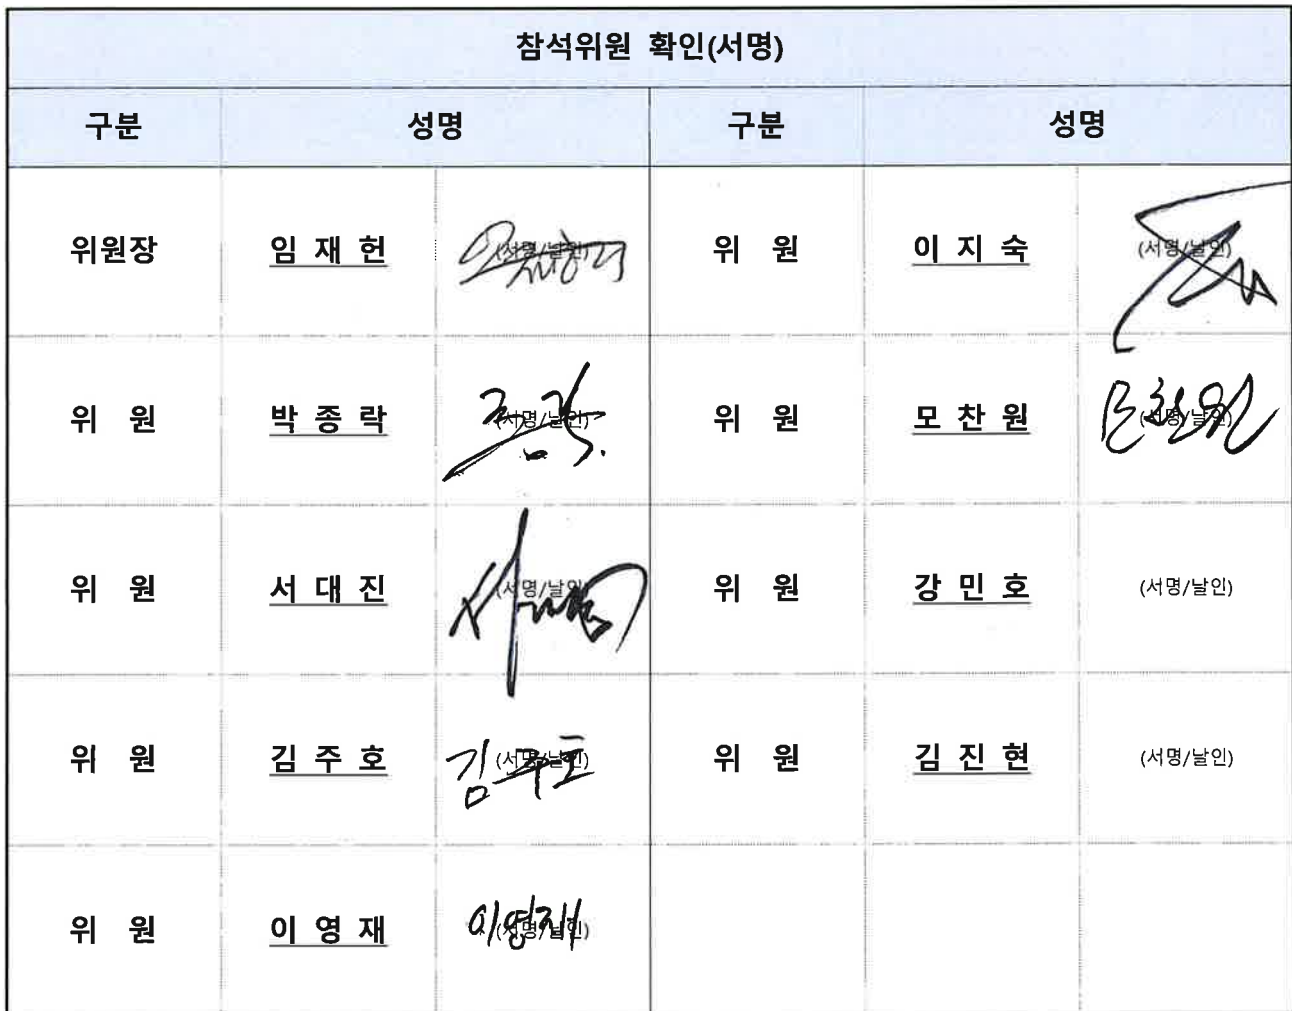 참석위원 확인(서명)
구분 성명 구분 성명
위원장 임 재 헌 (서명/날인) 위 원 이 지 숙 (서명/날인)
위 원 박 종 락 (서명/날인) 위 원 모 찬 원 (서명/날인) 모찬원
위 원 서 대 진 (서명/날인) 위 원 강 민 호 (서명/날인)
위 원 김 주 호 (서명/날인) 김주호 위 원 김 진 현 (서명/날인)
위 원 이 영 재 (서명/날인) 이영재